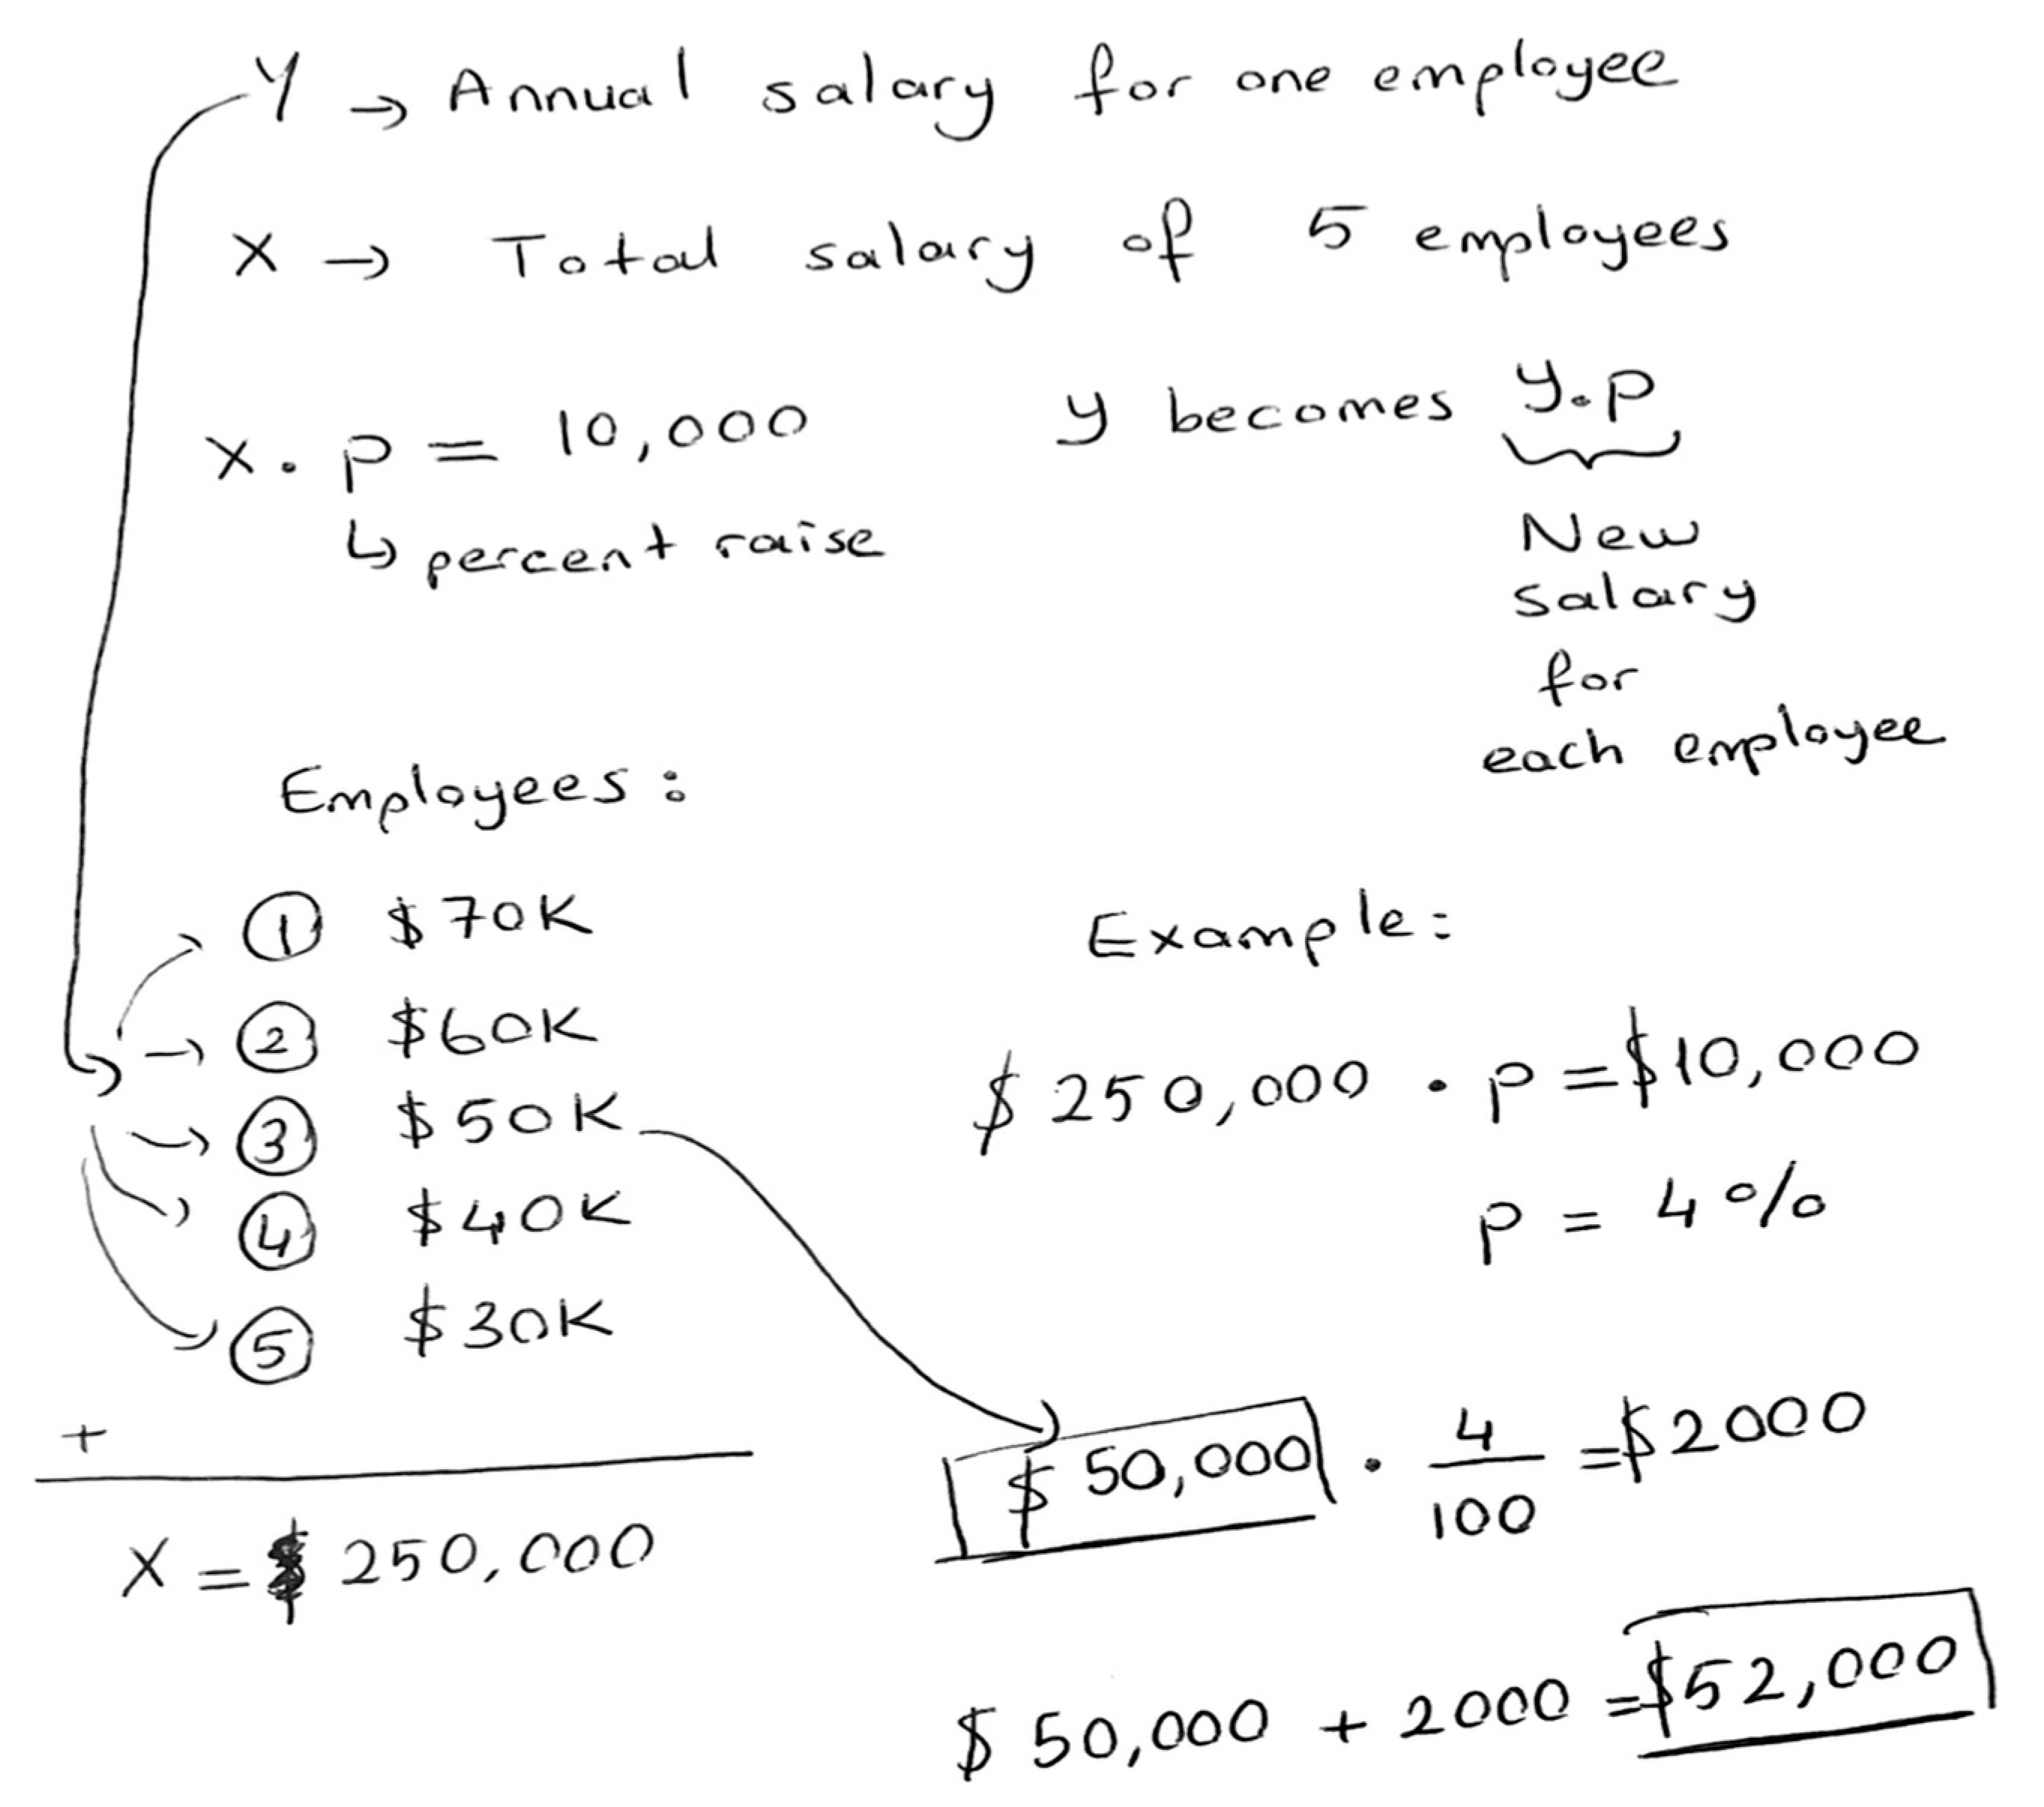 Y → Annual salary for one employee
X → Total salary of 5 employees
X . P = 10,000
↳ percent raise
y becomes y.p
New
salary
for
each employee
Employees:
① $70K
② $60K
③ $50K
④ $40K
⑤ $30K
+
X = $ 250,000
Example:
$ 250,000 . p = $10,000
p = 4%
$ 50,000 . 4/100 = $2000
$ 50,000 + 2000 = $52,000